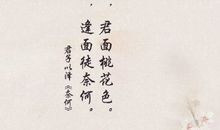 君面桃花色。
逢面徒奈何。
君子以泽《奈何》